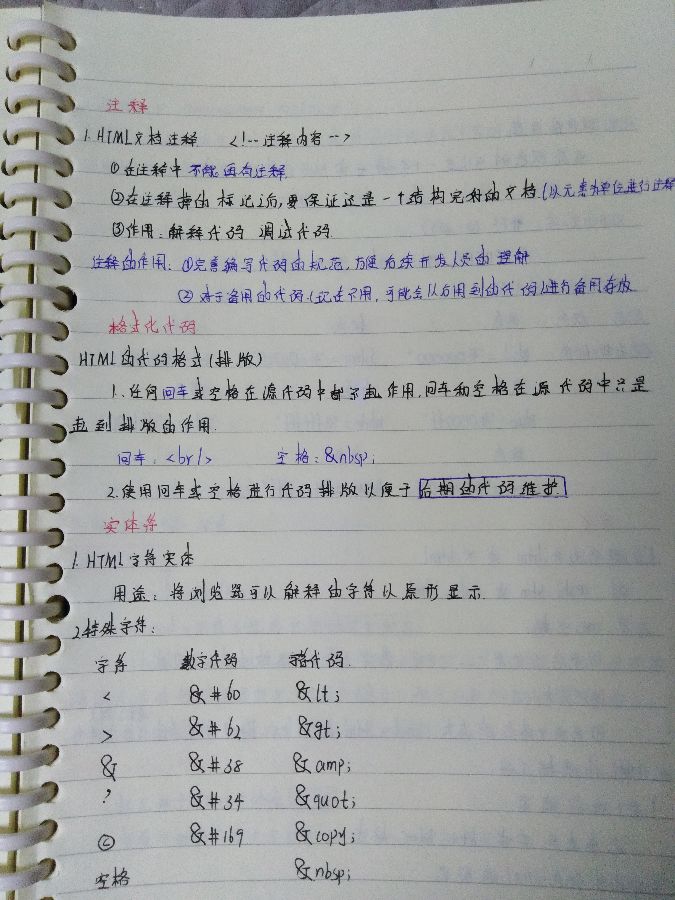 注释
1. HTML文档注释 <!-- 注释内容 -->
①在注释中 不能再有注释
②在注释掉的标记后,要保证还是一个结构完好的文档(以元素为单位进行注释
③作用:解释代码 调试代码
注释的作用:①完善编写代码的规范,方便后续开发人员的理解
②对于备用的代码(现在不用,可能会以后用到的代码)进行备用存放
格式化代码
HTML的代码格式(排版)
1.任何回车或空格在源代码中都不起作用,回车和空格在源代码中只是
起到排版的作用.
回车:<br/> 空格:&nbsp;
2.使用回车或空格进行代码排版以便于后期的代码维护
实体符
1. HTML字符实体
用途:将浏览器可以解释的字符以原形显示.
2.特殊字符:
字符 数字代码 代码.
< &#60 &lt;
> &#62 &gt;
& &#38 &amp;
? &#34 &quot;
© &#169 &copy;
空格 &nbsp;